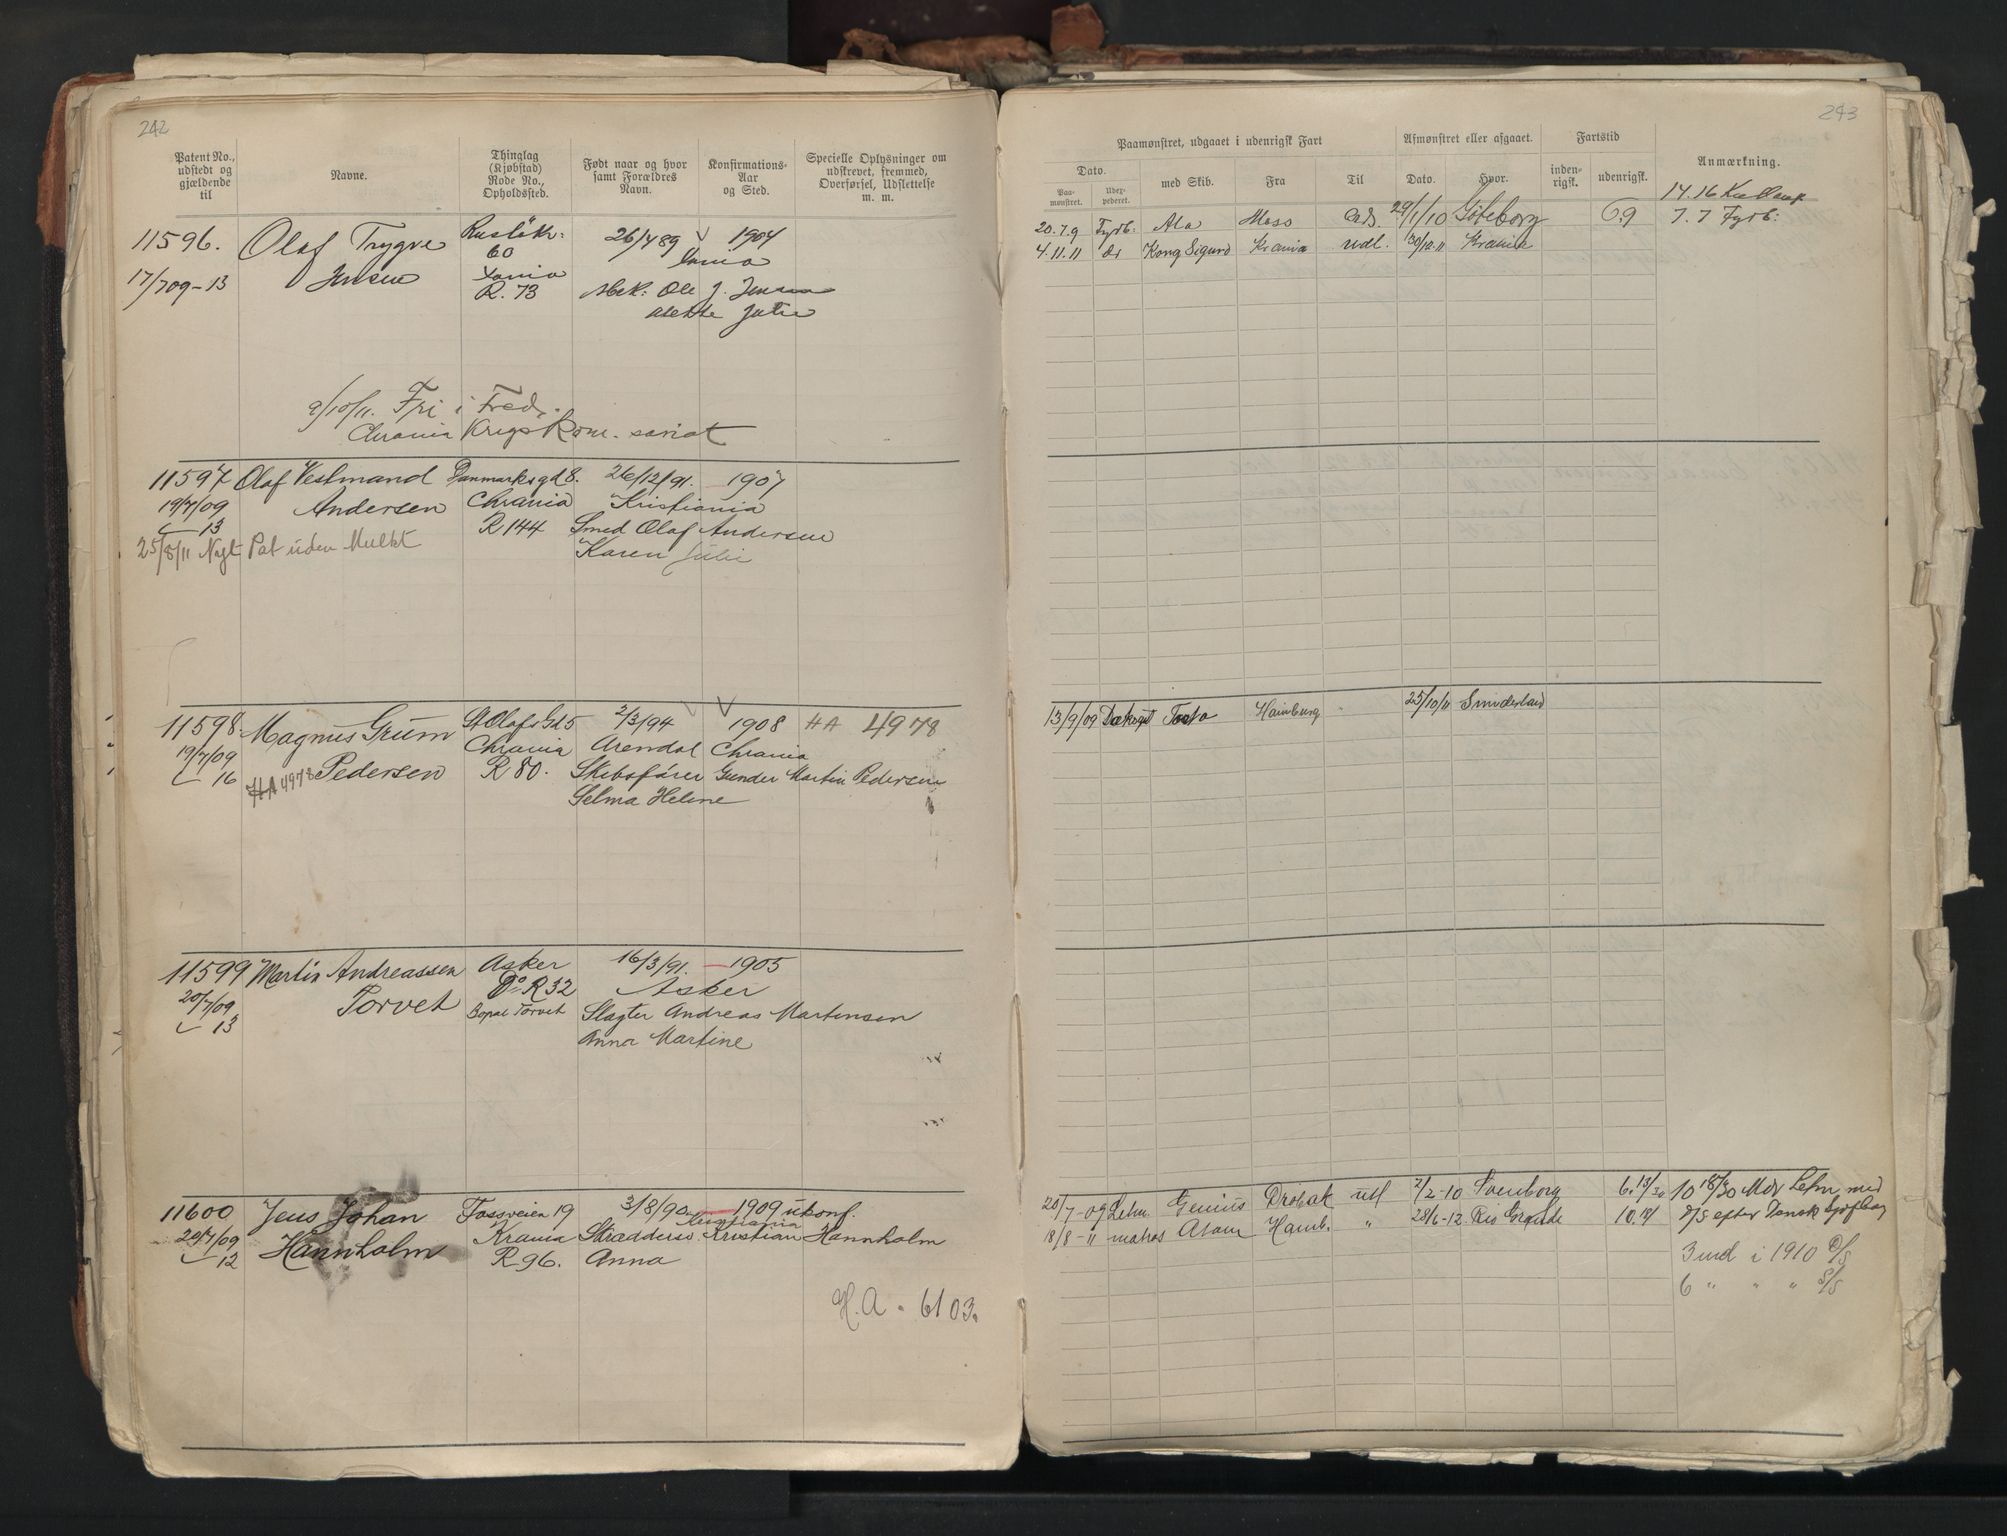 242
Patent No., udstedt og gjældende til
Navne.
Thinglag (Kjøbstad) Rode No., Opholdssted.
Født naar og hvor samt Forældres Navn.
Konfirmations-Aar og Sted.
Specielle Oplysninger om udskrevet, fremmed, Overførsel, Udslettelse m. m.
11596. Olaf Trygve 26/4 89 1904
60
17/7 09-13 Jensen R. 73 Ole J. Jensen
9/10/11. Fri i Fred.
Chrania Krigskom. sariat
11597 Olaf Vestmand Danmarksgd 8. 26/12/91. 1907
19/7/09 Andersen Chrania Kristiania
13 R 144 Smed Olaf Andersen
25/8/11 Nyt Pat uden Mulkt Karen Juli
11598. Magnus Grum St Olafs Gd 5 2/3/94 1908 HA 4978
19/7/09 Chrania Arendal Chrania
16 HA 4978 Pedersen R 80. Skibsfører Gunder Martin Pedersen
Selma Helene
11599 Martin Andreassen Asker 16/3/91. 1905
20/7/09 Torvet Do R 32 Asker
13 Bopæl Torvet Slagter Andreas Martensen
Anna Martine
11600 Jens Johan Fossveien 19 3/8/90 1909 ukonf.
Kristiania
20/7/09 Hannholm Krania Kristian Hannholm
12 R 96. Anna
H.A. 6103.
243
Paamønstret, udgaaet i udenrigsk Fart
Afmønstret eller afgaaet.
Fartstid
Anmærkning.
Dato.
Paa-mønstret.
Uder-pederet.
med Skib.
Fra
Til
Dato.
Hvor.
inden-rigsk.
udenrigsk.
14.16
20.7.9 Fyrb: Ala Moss 29/1/10 Göteborg 6.9 7.7 Fyrb:
4.11.11 do Kong Sigurd Krania udl. 30/12.11 Krania
13/9/09 Hamburg 25/10/11 Sunderland
20/7-09 Letm. Genius Drøbak utl 2/2-10 Svenborg 6.13/30 10 18/30 Mdr Letm. med
18/8-11 matros Hamb. " 28/6-12. Rio Grande 10.18/ S/S efter Dansk Sjøfbog
3 md i 1910 S/S
6 " " " S/S